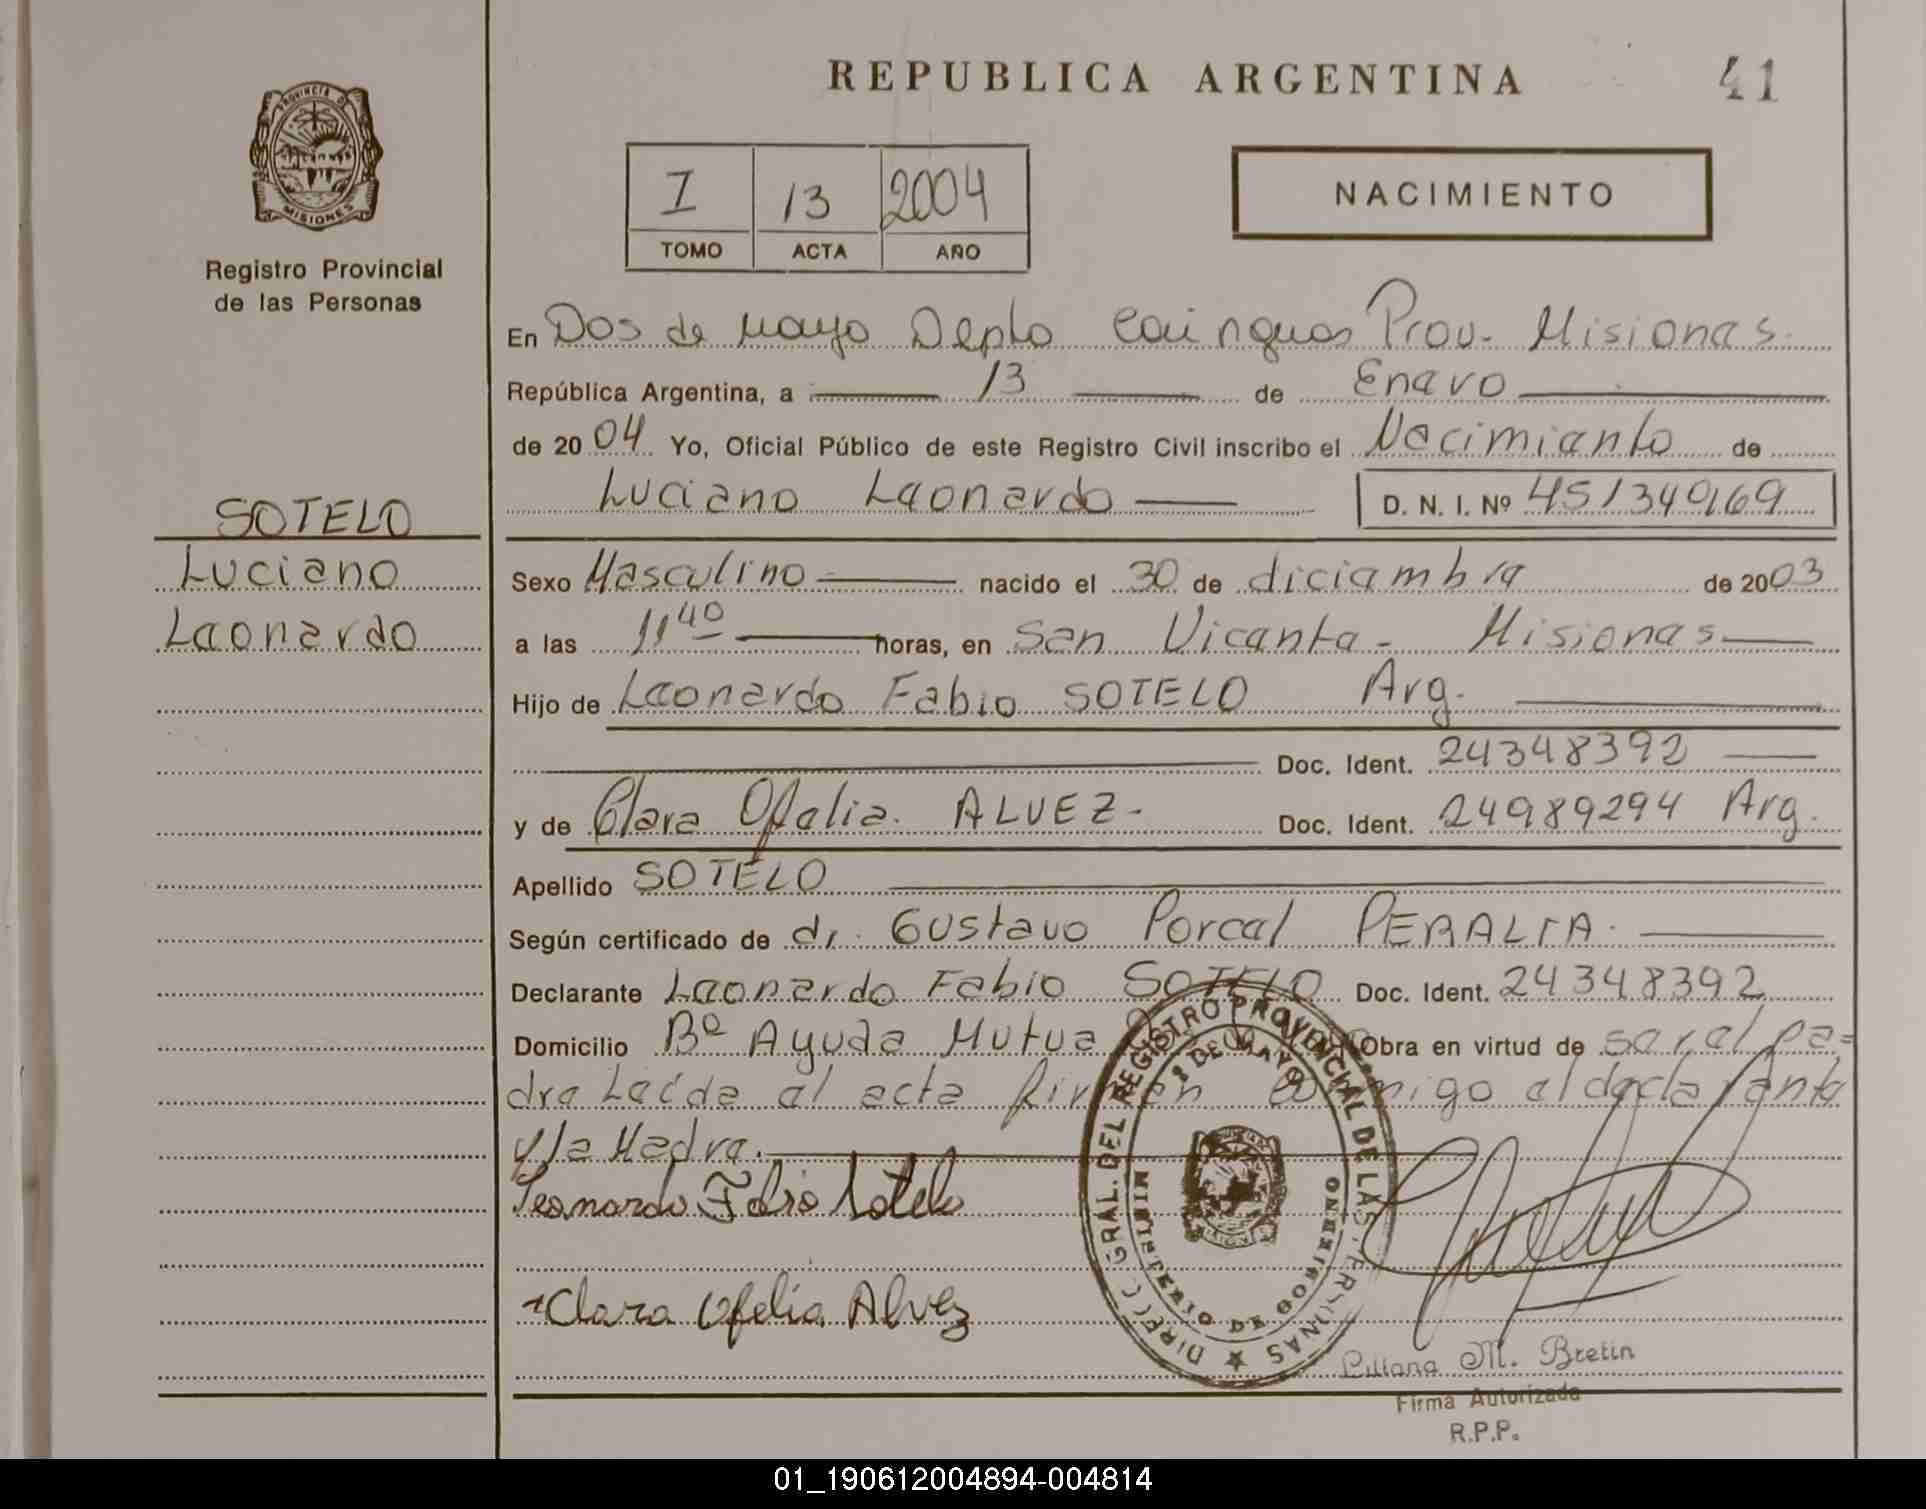 REPUBLICA ARGENTINA
41
PROVINCIA DE
MISIONES
Registro Provincial
de las Personas
I 13 2004
TOMO ACTA AÑO
NACIMIENTO
En Dos de Mayo Depto Cainguas Prov. Misiones.
República Argentina, a 13 de Enero
de 2004 Yo, Oficial Público de este Registro Civil inscribo el Nacimiento de
Luciano Leonardo D. N. I. Nº
SOTELO
Luciano
Leonardo
Sexo Masculino nacido el 30 de diciembre de 2003
a las 11 40 horas, en San Vicente - Misiones
Hijo de Leonardo Fabio SOTELO Arg.
Doc. Ident. 24348392
y de Clara Ofelia. ALVEZ- Doc. Ident. 24989294 Arg.
Apellido SOTELO
Según certificado de dr. Gustavo Porcal PERALTA.
Declarante Leonardo Fabio SOTELO Doc. Ident. 24348392
Domicilio Bº Ayuda Mutua Obra en virtud de ser el pa=
dre Leída el acta firman conmigo el declarante
y la Madre.
Leonardo Fabio Sotelo
Clara Ofelia Alvez
DIRECC. GRAL. DEL REGISTRO PROVINCIAL DE LAS PERSONAS
2 DE MAYO
MINISTERIO DE GOBIERNO
Liliana M. Bretin
Firma Autorizada
R.P.P.
01_190612004894-004814